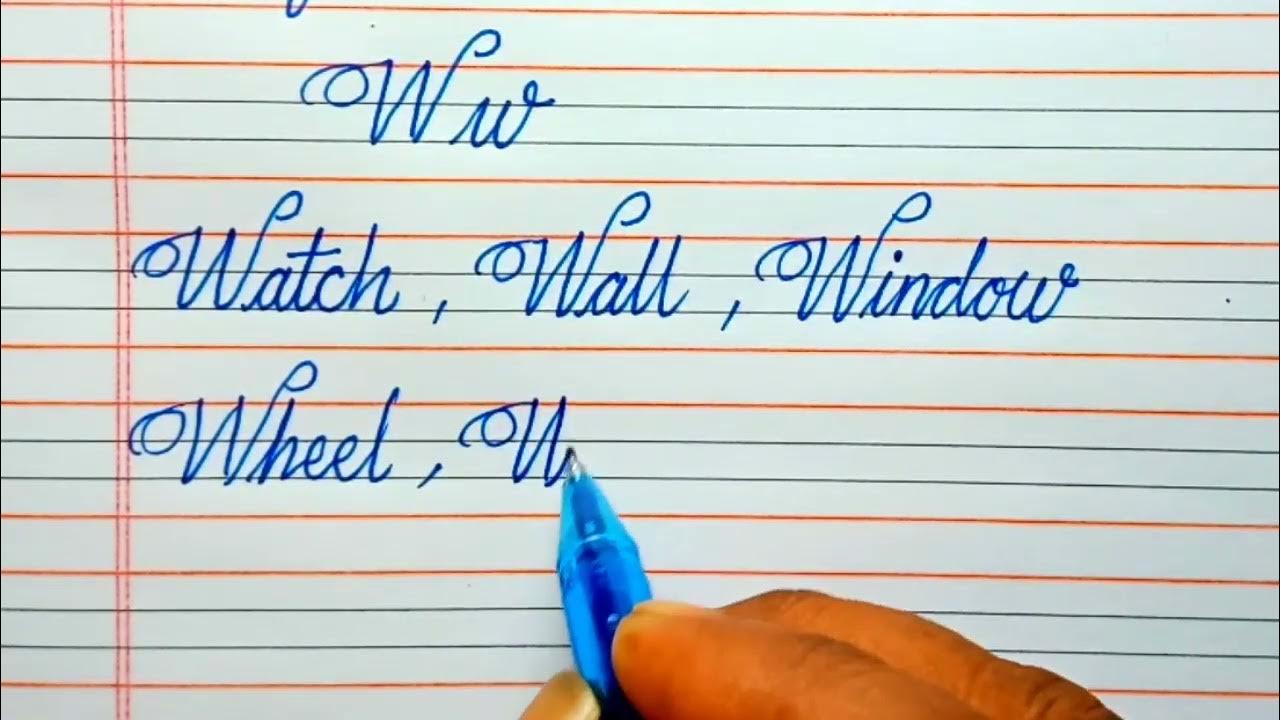 Ww
Watch , Wall , Window
Wheel , W